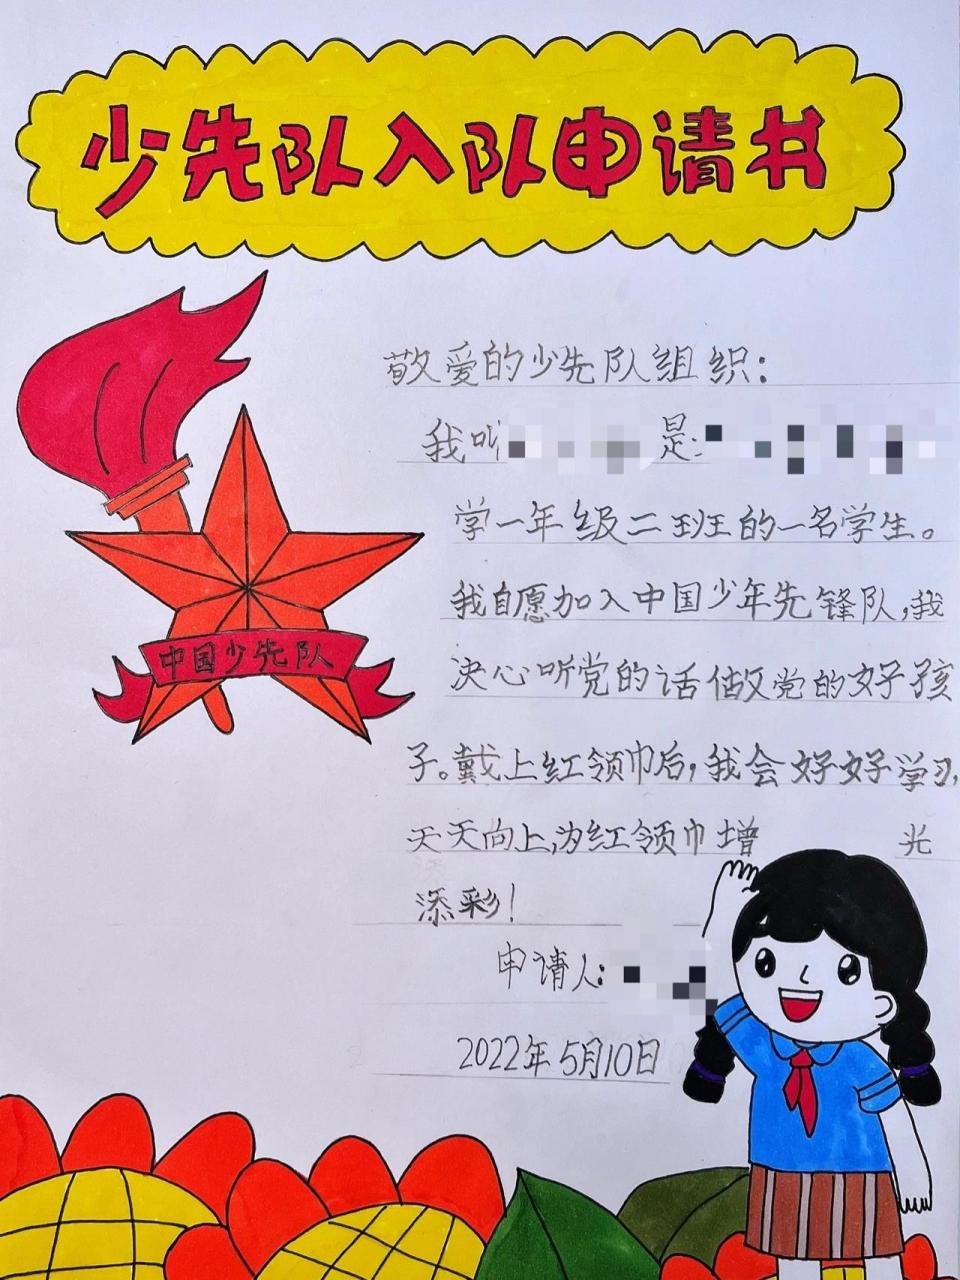 少先队入队申请书
中国少先队
敬爱的少先队组织：
我叫 是：
学一年级二班的一名学生。
我自愿加入中国少年先锋队，我
决心听党的话做党的好孩
子。戴上红领巾后，我会好好学习，
天天向上，为红领巾增 光
添彩！
申请人：
2022年5月10日